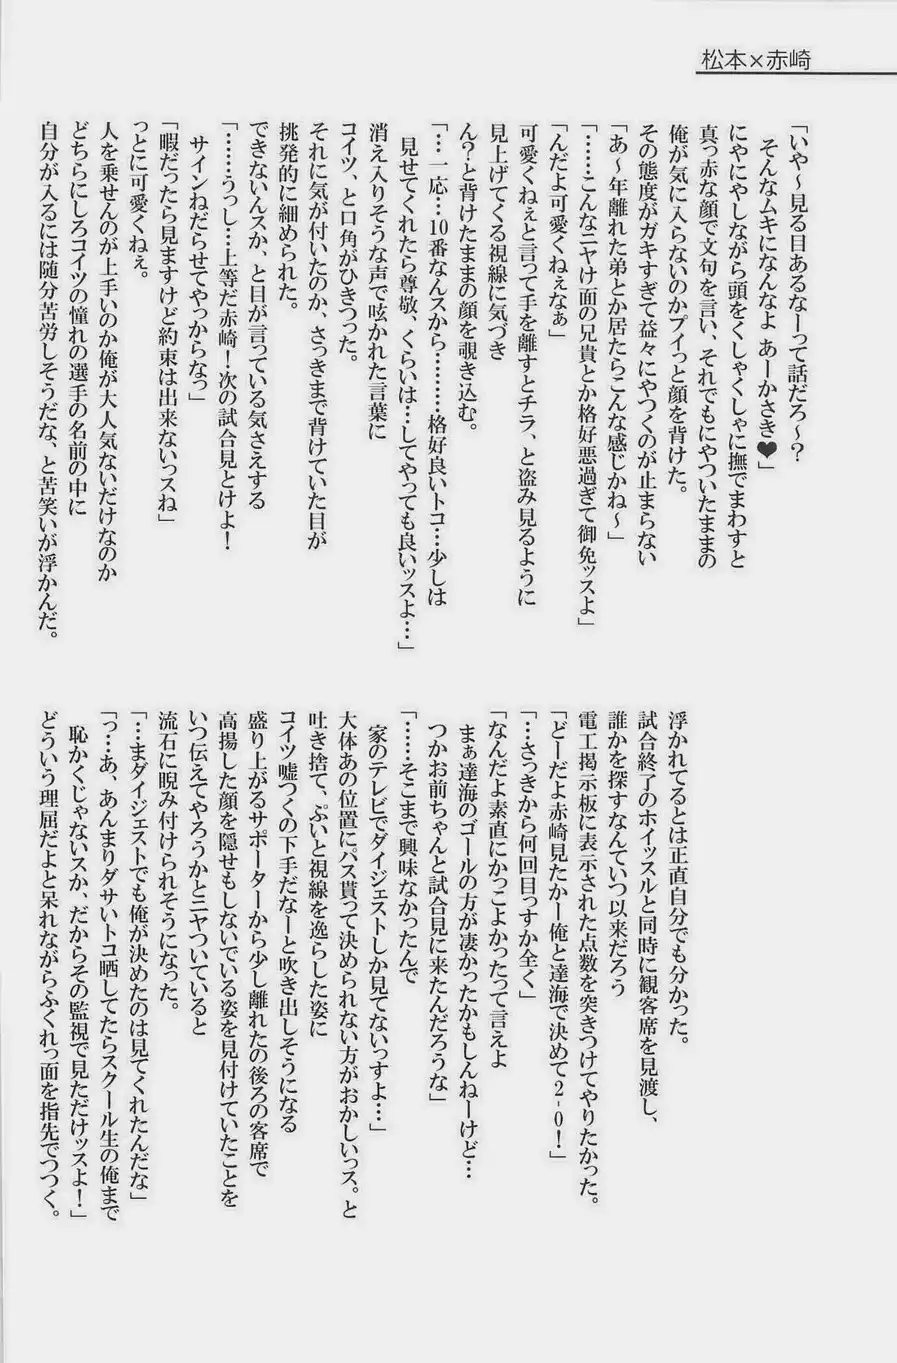 松本×赤崎
「いや～見る目あるなーって話だろ～？
そんなムキになんなよ あーかさき♥」
にやにやしながら頭をくしゃくしゃに撫でまわすと
真っ赤な顔で文句を言い、それでもにやついたままの
俺が気に入らないのかプイっと顔を背けた。
その態度がガキすぎて益々にやつくのが止まらない
「あ～年離れた弟とか居たらこんな感じかね～」
「……こんなニヤけ面の兄貴とか格好悪過ぎて御免ッスよ」
「んだよ可愛くねぇなぁ」
可愛くねぇと言って手を離すとチラ、と盗み見るように
見上げてくる視線に気づき
ん？と背けたままの顔を覗き込む。
「…一応…10番なんスから………格好良いトコ…少しは
見せてくれたら尊敬、くらいは…してやっても良いッスよ…」
消え入りそうな声で呟かれた言葉に
コイツ、と口角がひきつった。
それに気が付いたのか、さっきまで背けていた目が
挑発的に細められた。
できないんスか、と目が言っている気さえする
「……うっし…上等だ赤崎！次の試合見とけよ！
サインねだらせてやっからなっ」
「暇だったら見ますけど約束は出来ないっスね」
っとに可愛くねぇ。
人を乗せんのが上手いのか俺が大人気ないだけなのか
どちらにしろコイツの憧れの選手の名前の中に
自分が入るには随分苦労しそうだな、と苦笑いが浮かんだ。
浮かれてるとは正直自分でも分かった。
試合終了のホイッスルと同時に観客席を見渡し、
誰かを探すなんていつ以来だろう
電工掲示板に表示された点数を突きつけてやりたかった。
「どーだよ赤崎見たかー俺と達海で決めて2-0！」
「…さっきから何回目っすか全く」
「なんだよ素直にかっこよかったって言えよ
まぁ達海のゴールの方が凄かったかもしんねーけど…
つかお前ちゃんと試合見に来たんだろうな」
「……そこまで興味なかったんで
家のテレビでダイジェストしか見てないっすよ…」
大体あの位置にパス貰って決められない方がおかしいっス。と
吐き捨て、ぷいと視線を逸らした姿に
コイツ嘘つくの下手だなーと吹き出しそうになる
盛り上がるサポーターから少し離れたの後ろの客席で
高揚した顔を隠せもしないでいる姿を見付けていたことを
いつ伝えてやろうかとニヤついていると
流石に睨み付けられそうになった。
「…まダイジェストでも俺が決めたのは見てくれたんだな」
「っ…あ、あんまりダサいトコ晒してたらスクール生の俺まで
恥かくじゃないスか、だからその監視で見ただけッスよ！」
どういう理屈だよと呆れながらふくれっ面を指先でつつく。